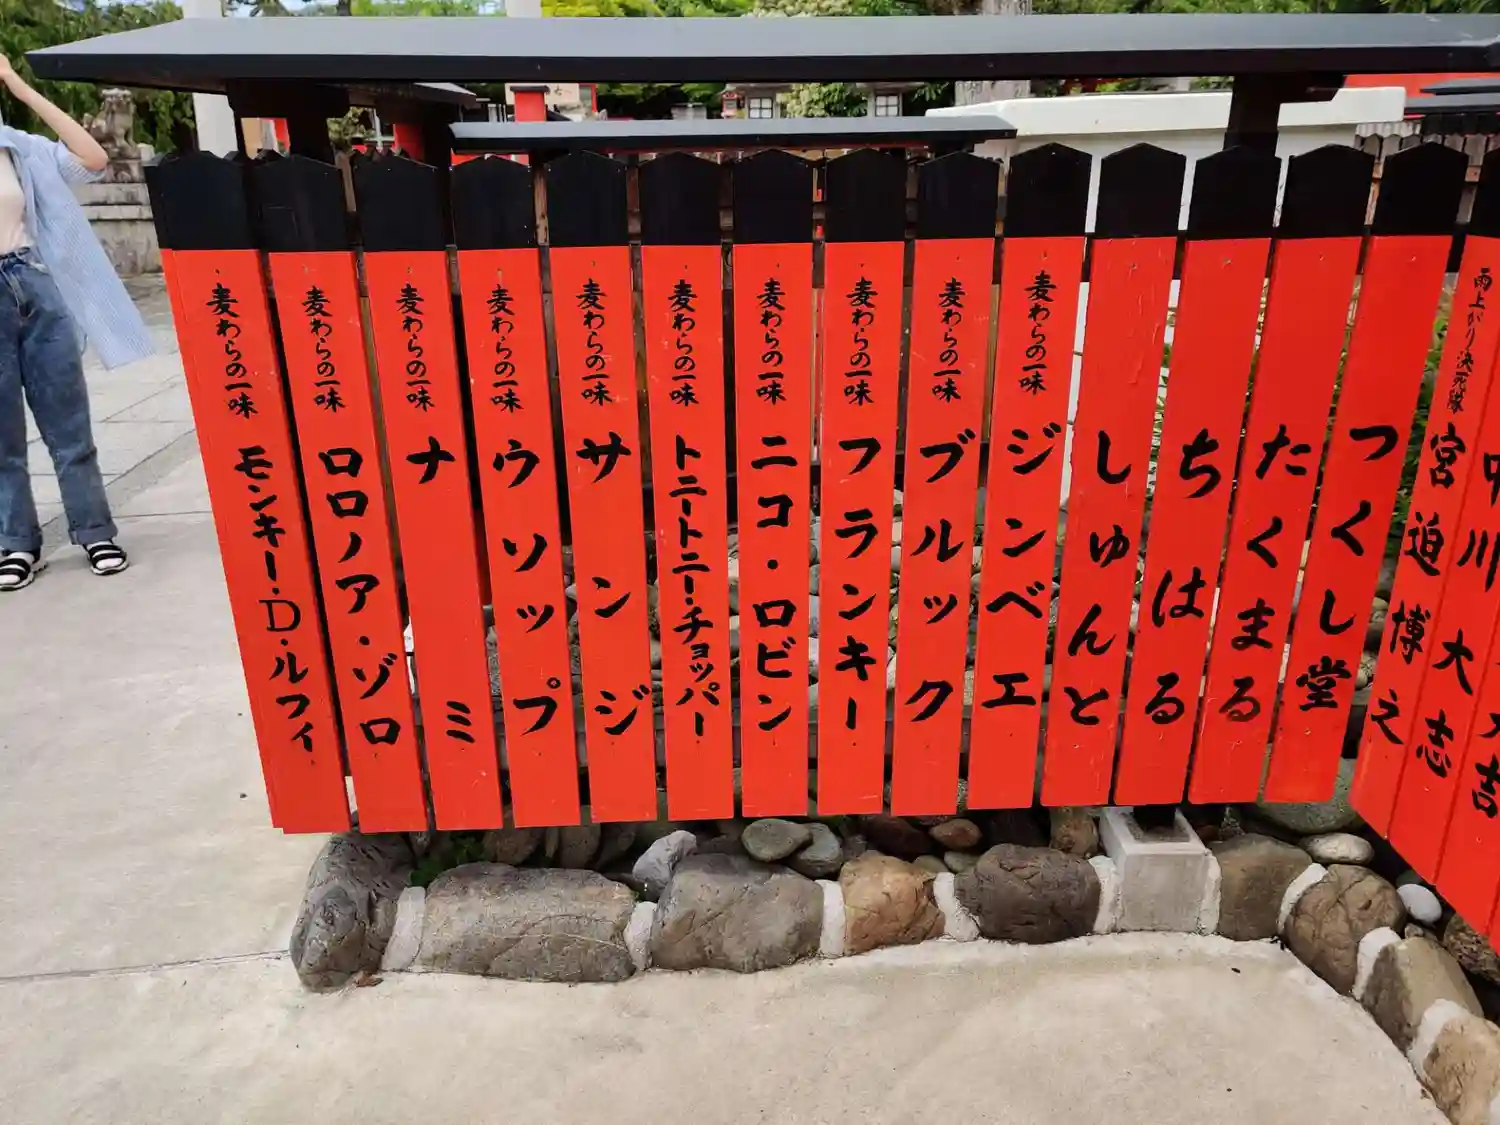 麦わらの一味 モンキー・D・ルフィ
麦わらの一味 ロロノア・ゾロ
麦わらの一味 ナミ
麦わらの一味 ウソップ
麦わらの一味 サンジ
麦わらの一味 トニートニー・チョッパー
麦わらの一味 ニコ・ロビン
麦わらの一味 フランキー
麦わらの一味 ブルック
麦わらの一味 ジンベエ
しゅんと
ちはる
たくまる
つくし堂
雨上がり決死隊 宮迫博之
中川大志